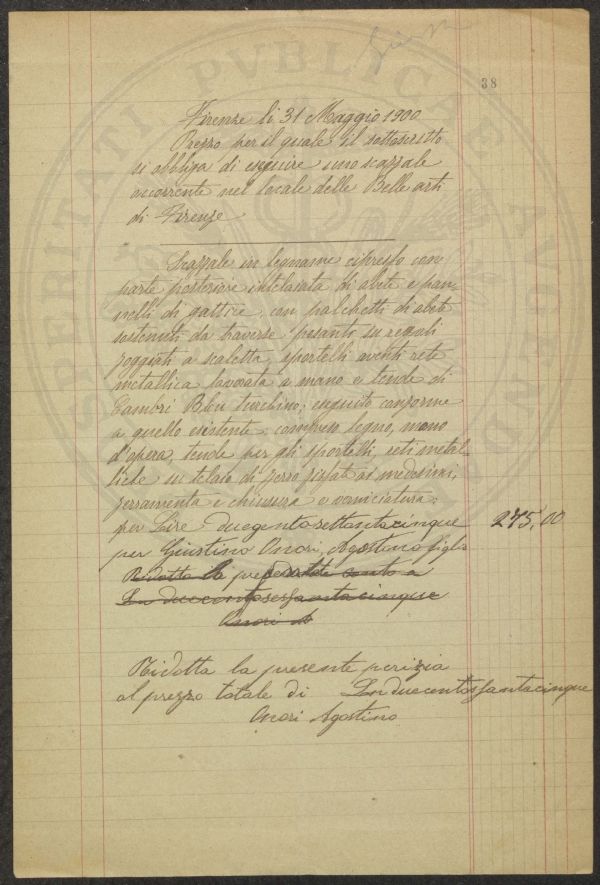 38
Firenze li 31 Maggio 1900
Prezzo per il quale il sottoscritto
si obbliga di eseguire uno scaffale
occorrente nel locale delle Belle arti
di Firenze
Scaffale in legname cipresso con
parte posteriore intelaiata di abete e pan-
nelli di gattice, con palchetti di abete
sostenuti da traverse posanti su regoli
foggiati a scaletta, sportelli aventi rete
metallica lavorata a mano e tende di
Cambri Bleu turchino; eseguito conforme
a quello esistente; compreso legno, mano
d'opera, tende per gli sportelli, reti metal-
liche su telaio di ferro fissate ai medesimi,
ferramenta e chiusura e verniciatura:
per Lire duegentosettantacinque 275,00
per Giustino Onori, Agostino figlio
Ridotta la presente conto a
Ln duecentosessantacinque
Onori A
Ridotta la presente perizia
al prezzo totale di Ln duecentossantacinque
Onori Agostino
PVBLICAE